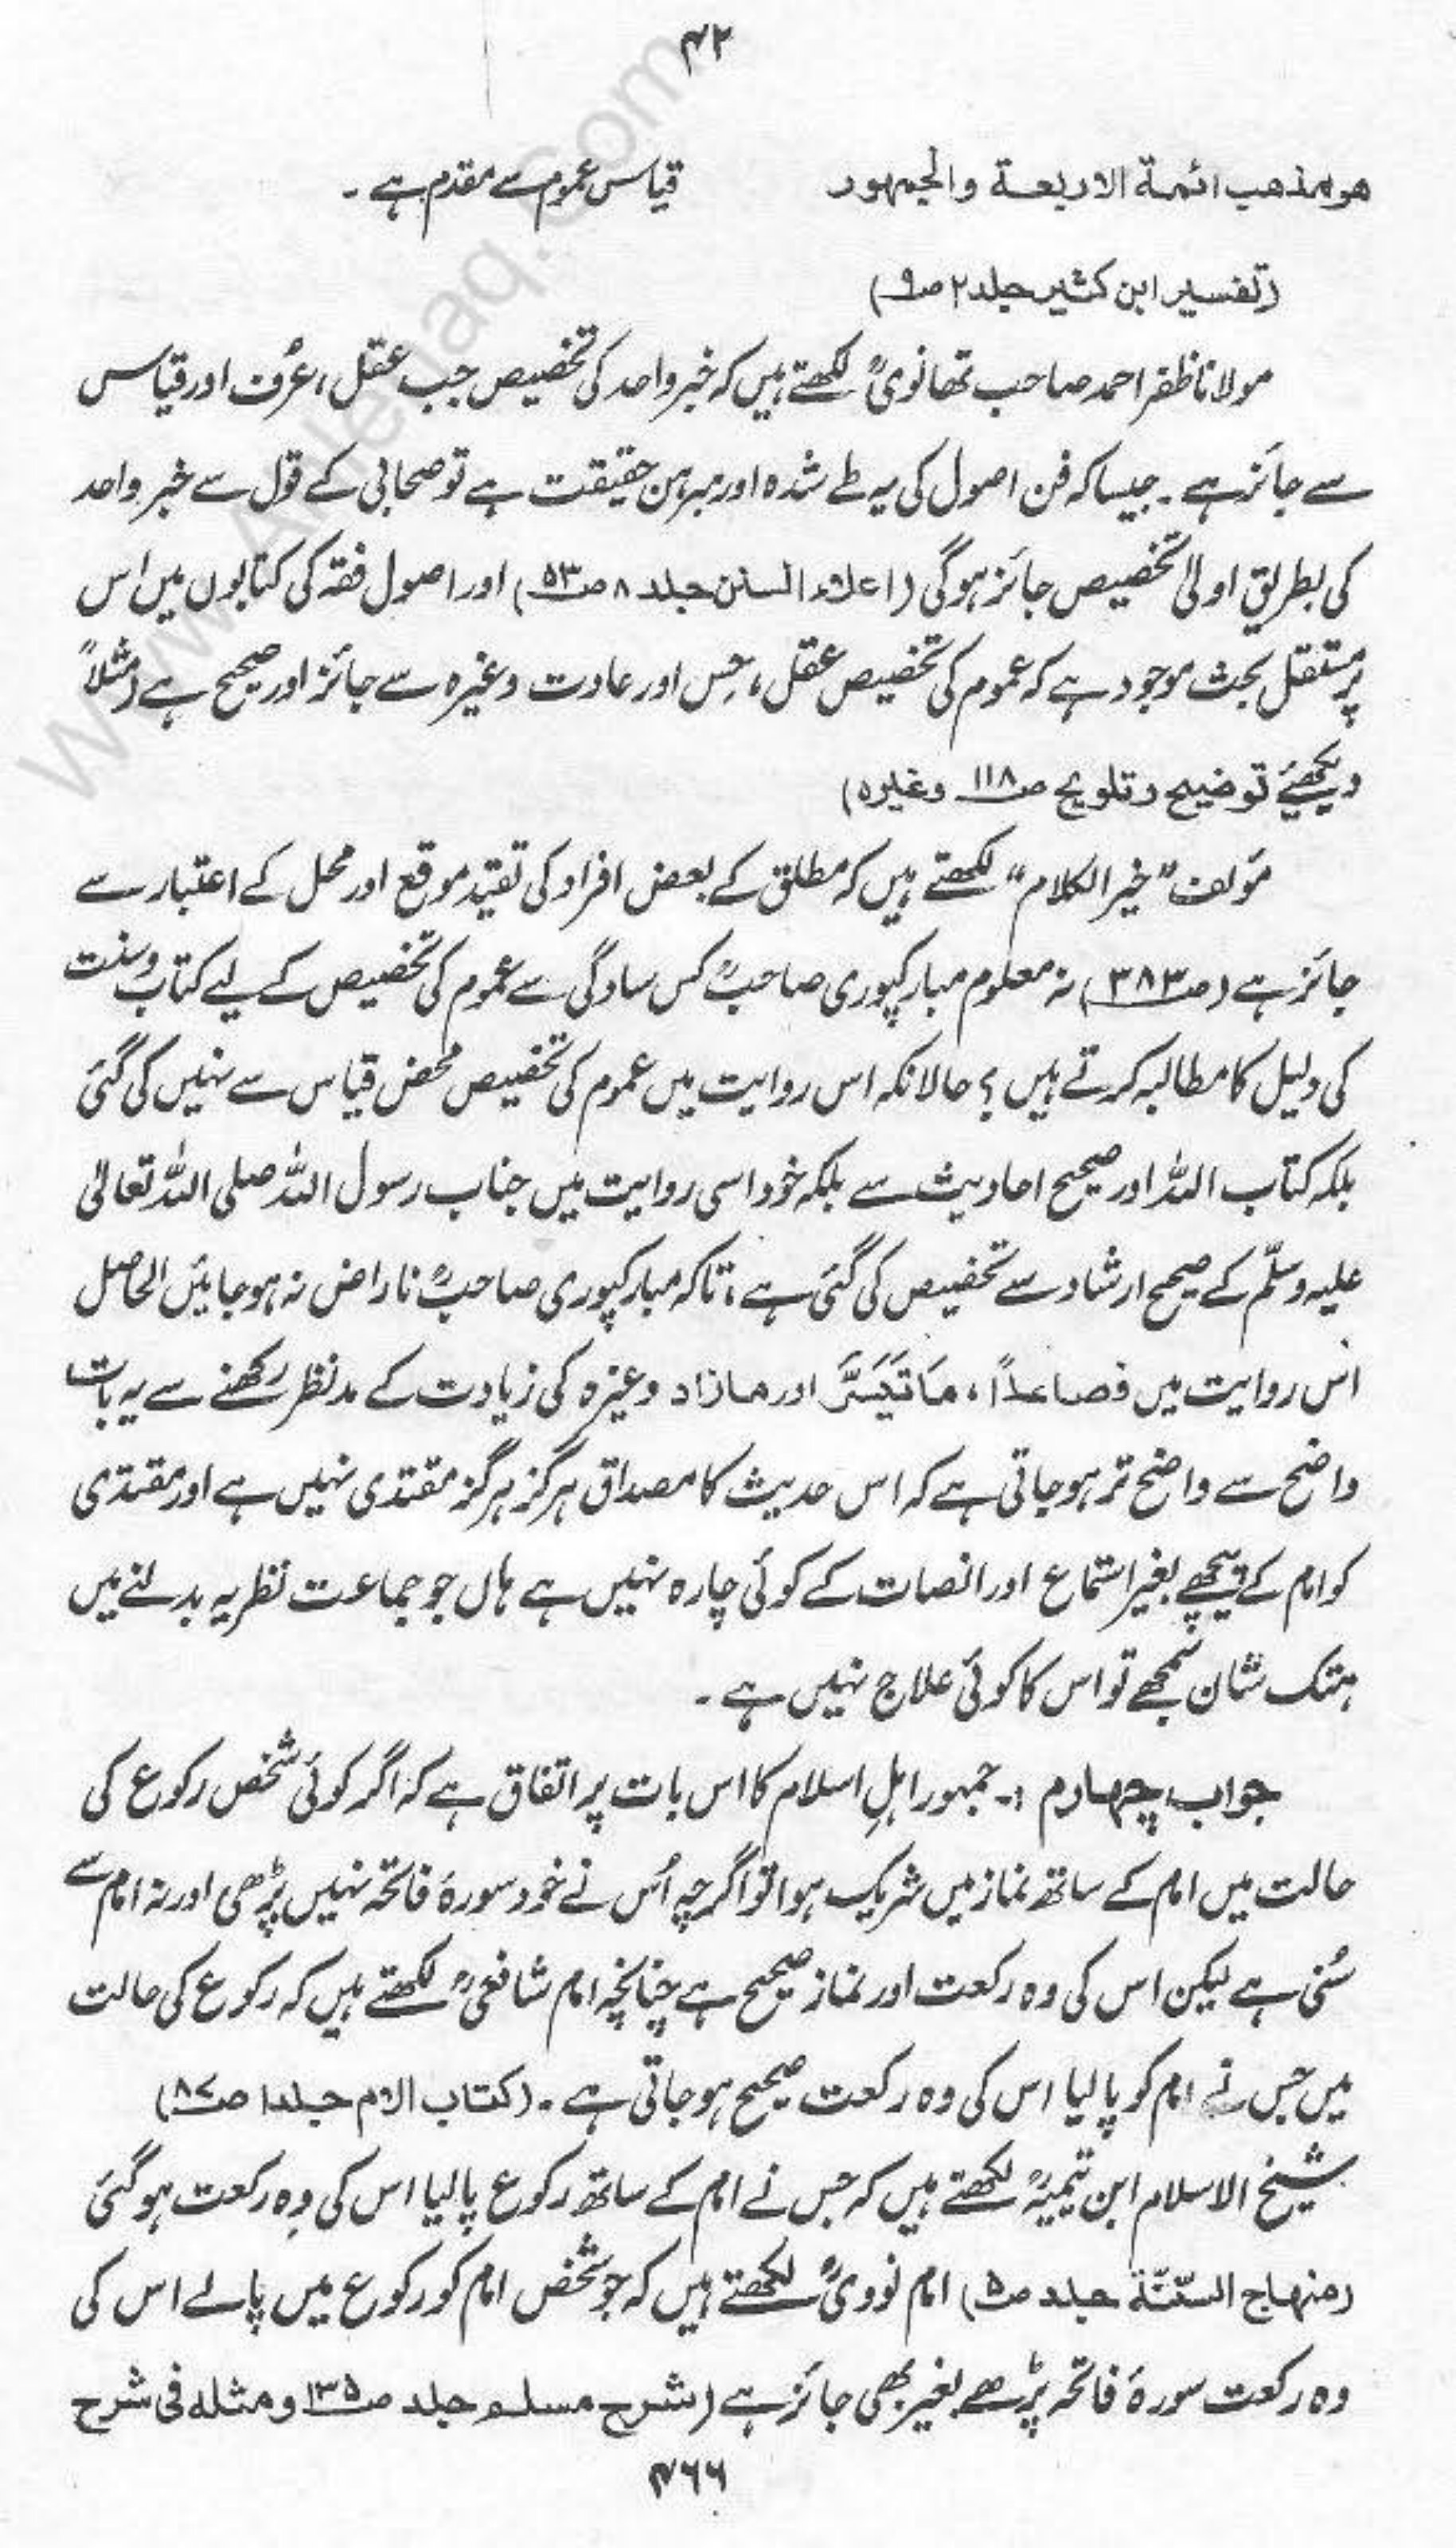 ۴۲
هو مذهب ائمة الاربعة والجمهور قیاس عموم سے مقدم ہے ۔
(تفسیر ابن کثیر جلد ۲ ص۹)
مولانا ظفر احمد صاحب تھانویؒ لکھتے ہیں کہ خبر واحد کی تخصیص جب عقل، عُرف اور قیاس
سے جائز ہے۔ جیسا کہ فن اصول کی یہ طے شدہ اور مبرہن حقیقت ہے تو صحابی کے قول سے خبر واحد
کی بطریق اولیٰ تخصیص جائز ہوگی (اعلاء السنن جلد ۸ ص۵۳) اور اصول فقہ کی کتابوں میں اس
پر مستقل بحث موجود ہے کہ عموم کی تخصیص عقل، حِس اور عادت وغیرہ سے جائز اور صحیح ہے (مثلاً
دیکھئے توضیح و تلویح ص۱۱۸ وغیرہ)
مؤلف "خیر الکلام" لکھتے ہیں کہ مطلق کے بعض افراد کی تقیید موقع اور محل کے اعتبار سے
جائز ہے (ص۳۸۳) نہ معلوم مبارکپوری صاحبؒ کس سادگی سے عموم کی تخصیص کے لیے کتاب و سنت
کی دلیل کا مطالبہ کرتے ہیں؟ حالانکہ اس روایت میں عموم کی تخصیص محض قیاس سے نہیں کی گئی
بلکہ کتاب اللہ اور صحیح احادیث سے بلکہ خود اسی روایت میں جناب رسول اللہ صلی اللہ تعالیٰ
علیہ وسلّم کے صحیح ارشاد سے تخصیص کی گئی ہے، تاکہ مبارکپوری صاحبؒ ناراض نہ ہوجائیں الحاصل
اس روایت میں فصاعداً، مَا تَیَسَّرَ اور مازاد وغیرہ کی زیادت کے مدنظر رکھنے سے یہ بات
واضح سے واضح تر ہوجاتی ہے کہ اس حدیث کا مصداق ہرگز ہرگز مقتدی نہیں ہے اور مقتدی
کو امام کے پیچھے بغیر استماع اور انصات کے کوئی چارہ نہیں ہے ہاں جو جماعت نظریہ بدلنے میں
ہتک شان سمجھے تو اس کا کوئی علاج نہیں ہے ۔
جواب چہارم :۔ جمہور اہلِ اسلام کا اس بات پر اتفاق ہے کہ اگر کوئی شخص رکوع کی
حالت میں امام کے ساتھ نماز میں شریک ہوا تو اگرچہ اُس نے خود سورۂ فاتحہ نہیں پڑھی اور نہ امام سے
سُنی ہے لیکن اس کی وہ رکعت اور نماز صحیح ہے چنانچہ امام شافعیؒ لکھتے ہیں کہ رکوع کی حالت
میں جس نے امام کو پا لیا اس کی وہ رکعت صحیح ہوجاتی ہے ۔ (کتاب الام جلد۱ ص۸۷)
شیخ الاسلام ابن تیمیہؒ لکھتے ہیں کہ جس نے امام کے ساتھ رکوع پا لیا اس کی وہ رکعت ہوگئی
(منہاج السّنّة جلد ص۵) امام نوویؒ لکھتے ہیں کہ جو شخص امام کو رکوع میں پالے اس کی
وہ رکعت سورۂ فاتحہ پڑھے بغیر بھی جائز ہے (شرح مسلم جلد ص۱۳۵ و مثله فی شرح
۴۶۶
www.Ahlehaq.Com